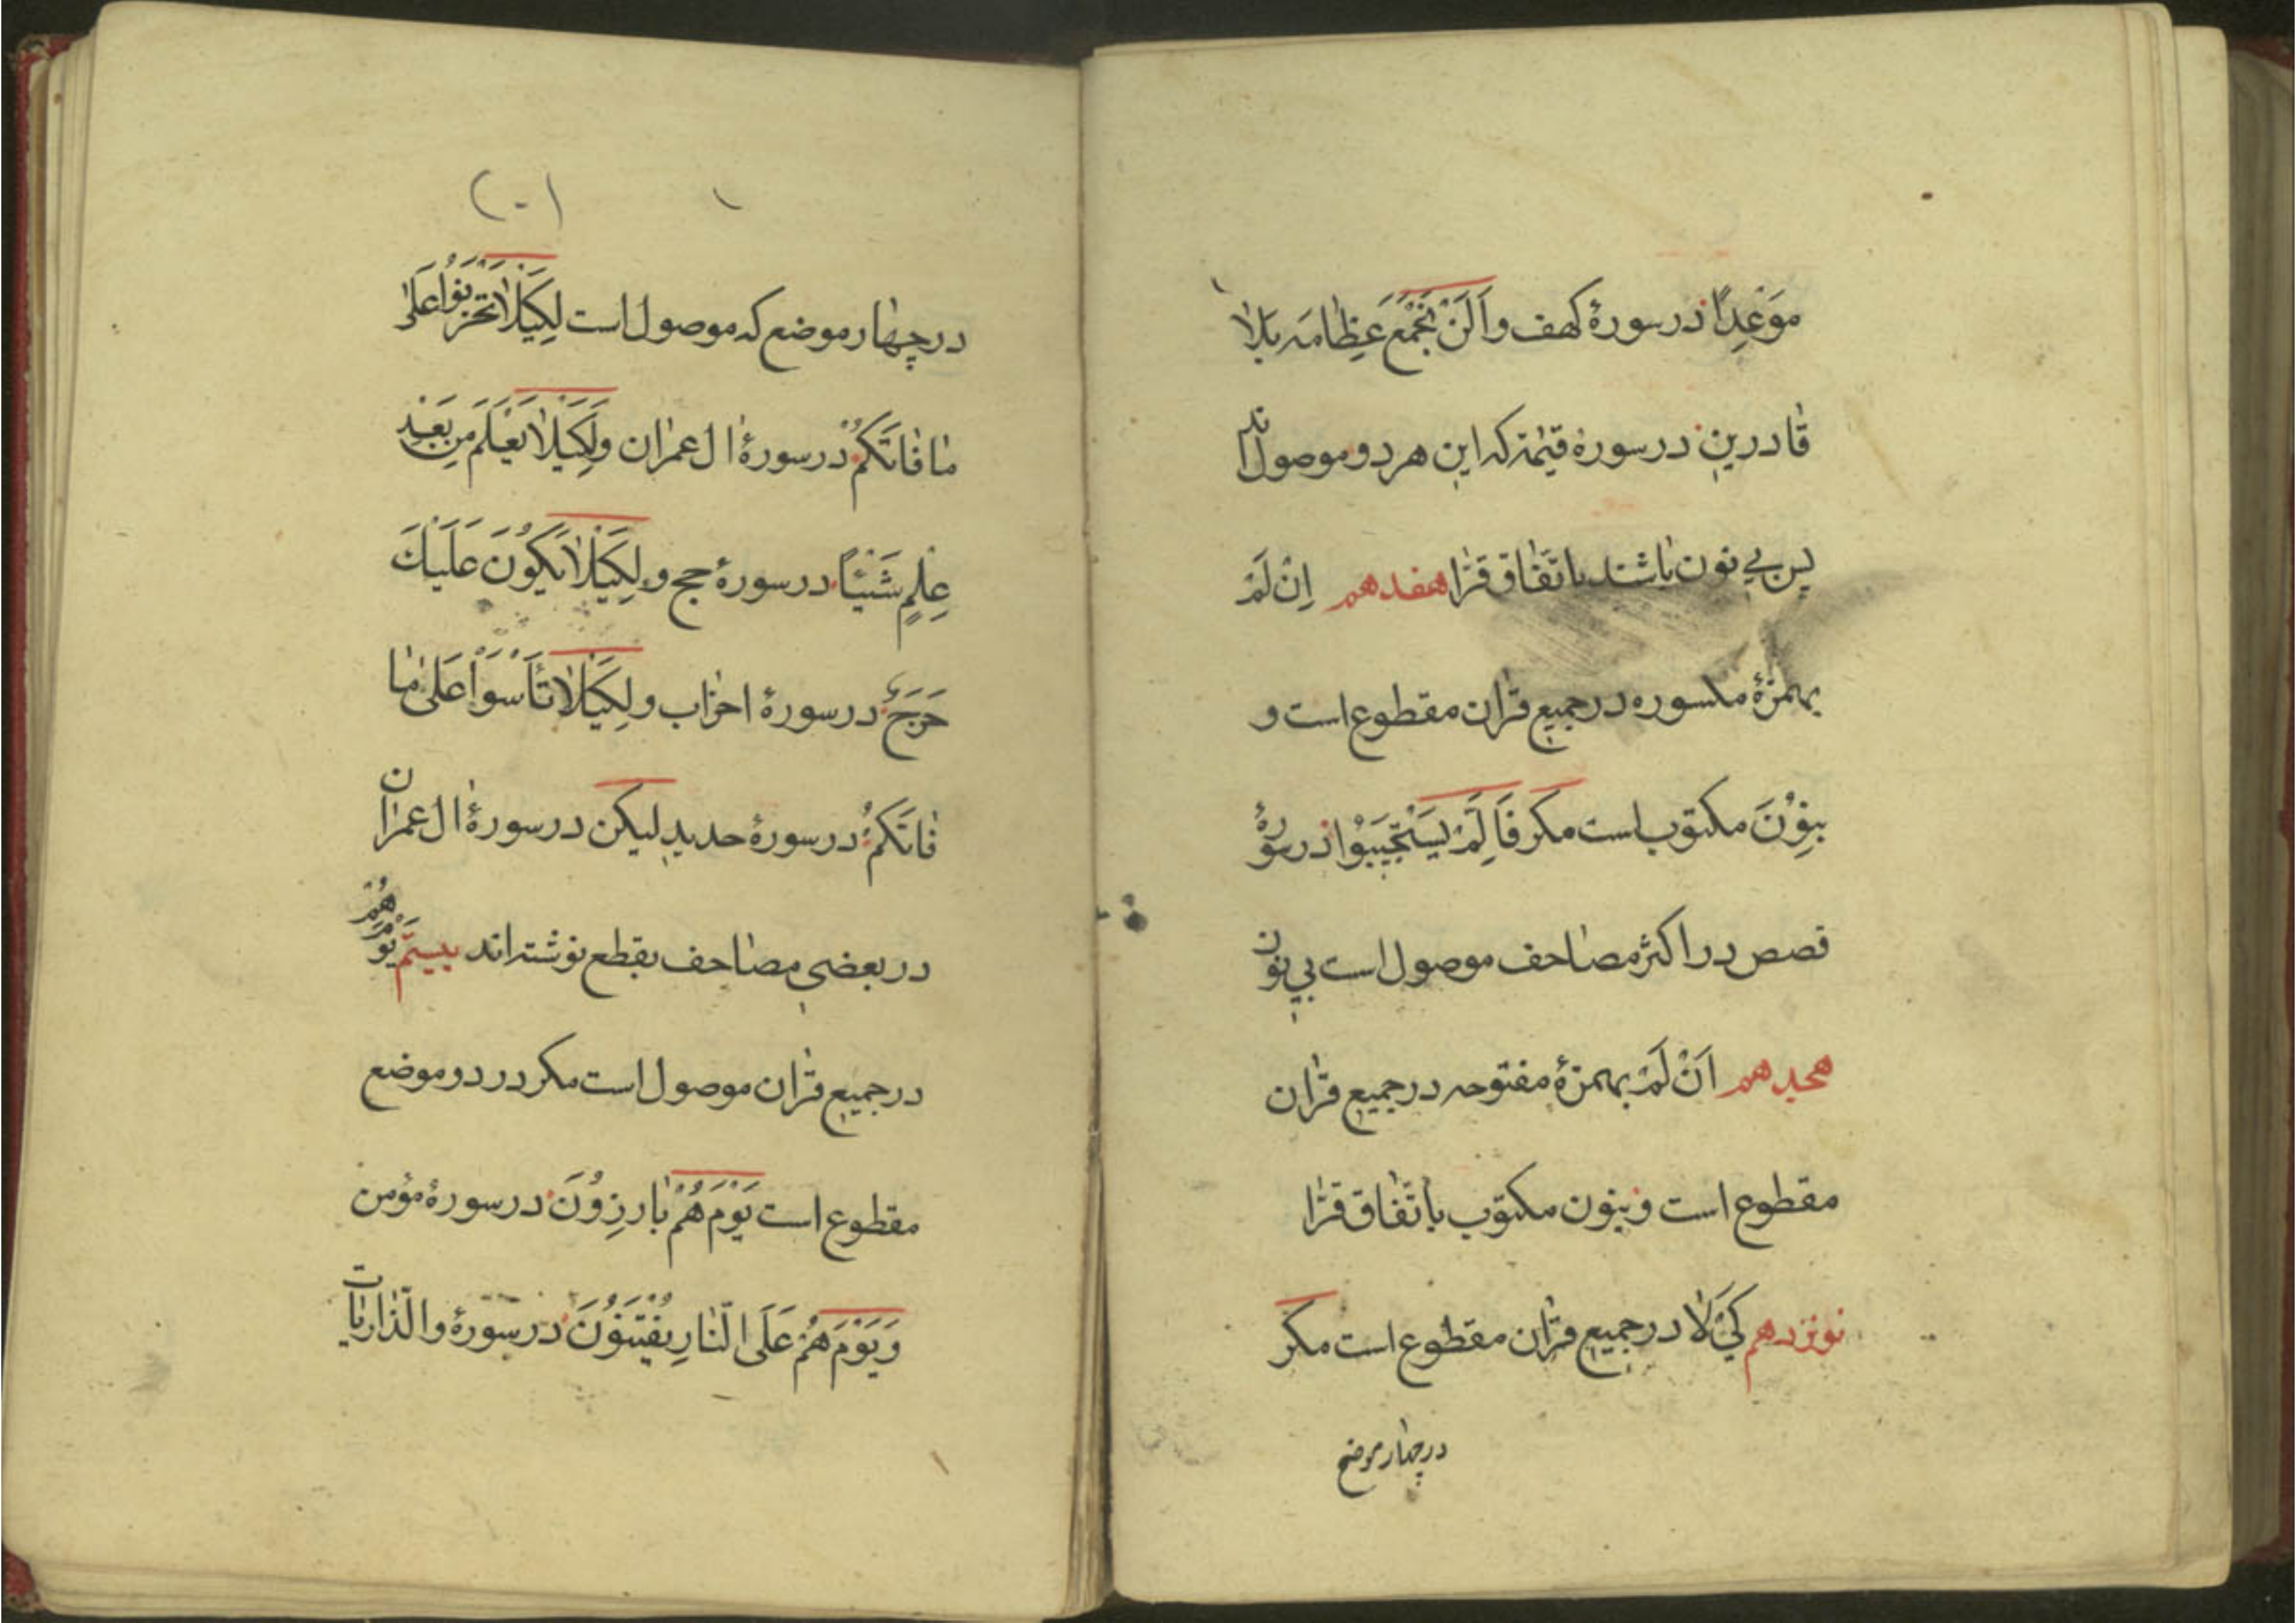 مَوْعِدًا در سورهٔ کهف و اَلَنْ نَجْمَعَ عِظٰامَه بَلٰا
قٰادرین در سورهٔ قیٰمة که این هر دو موصول اند
پس بی نون باشند باتّفاق قرّا هفدهم اِنْ لَمْ
بهمزهٔ مکسوره در جمیع قرآن مقطوع است و
بنِوُْنَ مکتوب است مکر فَاِلَّمْ یَسْتَجیَبوُْا در سورهٔ
قصص در اکثر مصٰاحف موصول است بی نون
هجدهم اَنْ لَمْ بهمزهٔ مفتوحه در جمیع قرآن
مقطوع است و بنون مکتوب باتّفاق قرّا
نوزدهم کَیْ لٰا در جمیع قرآن مقطوع است مکر
در چهار موضع
(۲۰)
در چهٰار موضع که موصول است لِکَیْلٰا تَحْزَنوُا عَلیٰ
مٰا فٰاتَکُمْ در سورهٔ اٰل عمرٰان و لِکَیْلٰا یَعْلَمَ مِن بَعْدِ
عِلْمٍ شَیْئًا در سورهٔ حج و لِکَیْلٰا یَکوُنَ عَلَیْكَ
حَرَجٌ در سورهٔ احزٰاب و لِکَیْلٰا تَأْسَوْا عَلیٰ مٰا
فٰاتَکُمْ در سورهٔ حدید لیکن در سورهٔ اٰل عمرٰان
در بعضی مصٰاحف بقطع نوشته اند بیستم یَوْمَ هُمْ
در جمیع قرآن موصول است مکر در دو موضع
مقطوع است یَوْمَ هُمْ بٰارِزوُنَ در سورهٔ مؤمن
وَ یَوْمَ هُمْ عَلَی النّٰارِ یُفْتَنوُنَ در سورهٔ والذّٰاریٰات